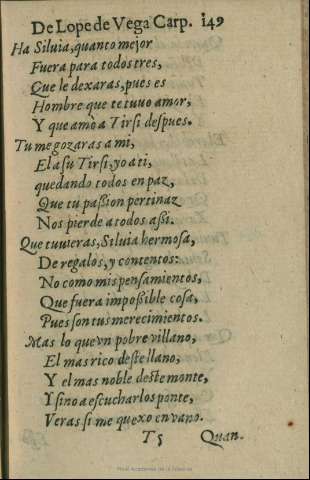 De Lope de Vega Carp. 149
Ha Siluia, quanto mejor
Fuera para todos tres,
Que le dexaras, pues es
Hombre que te tuuo amor,
Y que amò a Tirsi despues.
Tu me gozaras a mi,
El a su Tirsi, yo a ti,
quedando todos en paz,
Que tu passion pertinaz
Nos pierde a todos assi.
Que tuuieras, Siluia hermosa,
De regalos, y contentos:
No como mis pensamientos,
Que fuera impossible cosa,
Pues son tus merecimientos.
Mas lo que vn pobre villano,
El mas rico deste llano,
Y el mas noble deste monte,
Y sino a escucharlos ponte,
Veras si me quexo en vano.
T 5 Quan.
Real Academia de la Historia